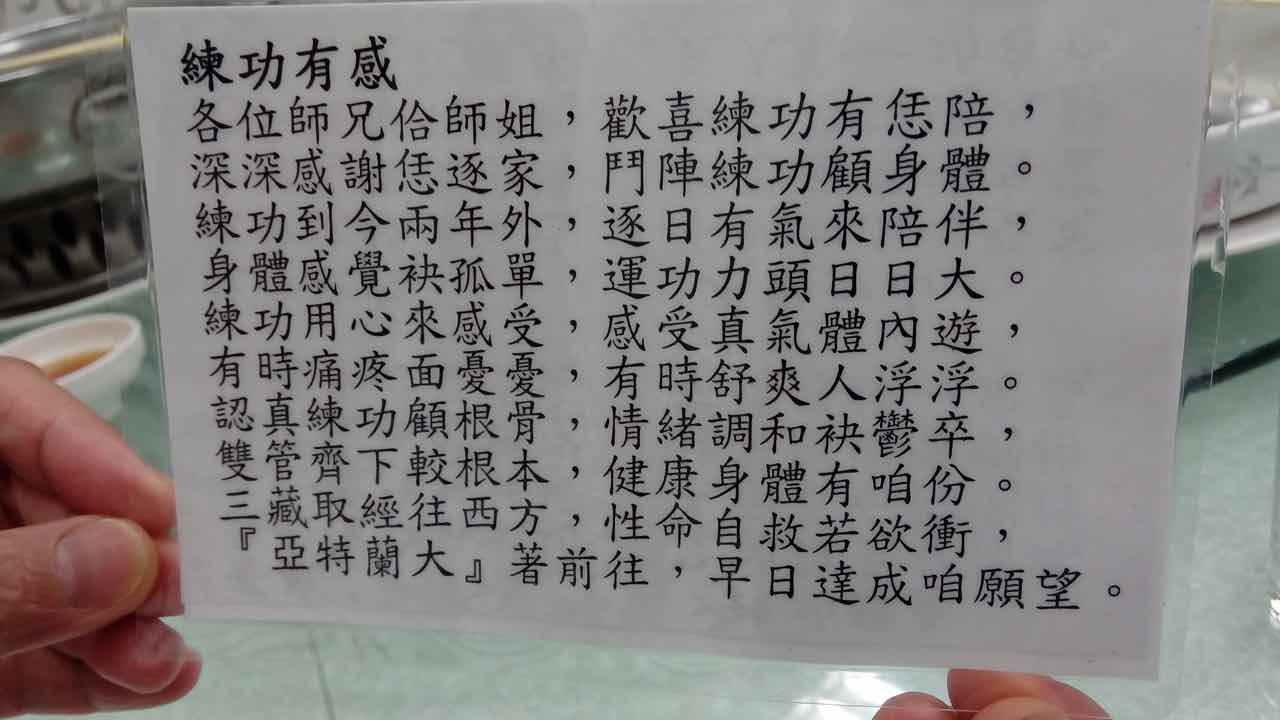 練功有感
各位師兄佮師姐，歡喜練功有恁陪，
深深感謝恁逐家，鬥陣練功顧身體。
練功到今兩年外，逐日有氣來陪伴，
身體感覺袂孤單，運功力頭日日大。
練功用心來感受，感受真氣體內遊，
有時痛疼面憂憂，有時舒爽人浮浮。
認真練功顧根骨，情緒調和袂鬱卒，
雙管齊下較根本，健康身體有咱份。
三藏取經往西方，性命自救若欲衝，
『亞特蘭大』著前往，早日達成咱願望。